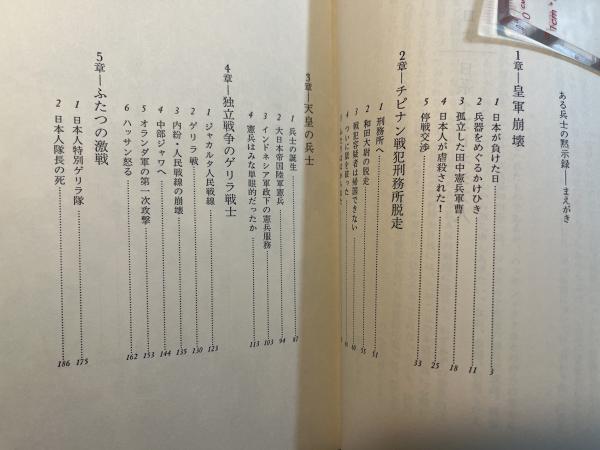 ある兵士の黙示録——まえがき
1章—皇軍崩壊
1 日本が負けた日 3
2 兵器をめぐるかけひき 11
3 孤立した田中憲兵軍曹 18
4 日本人が虐殺された! 25
5 停戦交渉 33
2章—チピナン戦犯刑務所脱走
1 刑務所へ 51
2 和田大尉の脱走 55
3 戦犯容疑者は帰国できない
4 ついに獄を破った
3章—天皇の兵士
1 兵士の誕生 87
2 大日本帝国陸軍憲兵 94
3 インドネシア軍政下の憲兵服務 103
4 憲兵はみな単眼的だったか 113
4章—独立戦争のゲリラ戦士
1 ジャカルタ人民戦線 123
2 ゲリラ戦 130
3 内紛・人民戦線の崩壊 135
4 中部ジャワへ 144
5 オランダ軍の第一次攻撃 153
6 ハッサン怒る 162
5章—ふたつの激戦
1 日本人特別ゲリラ隊 175
2 日本人隊長の死 186